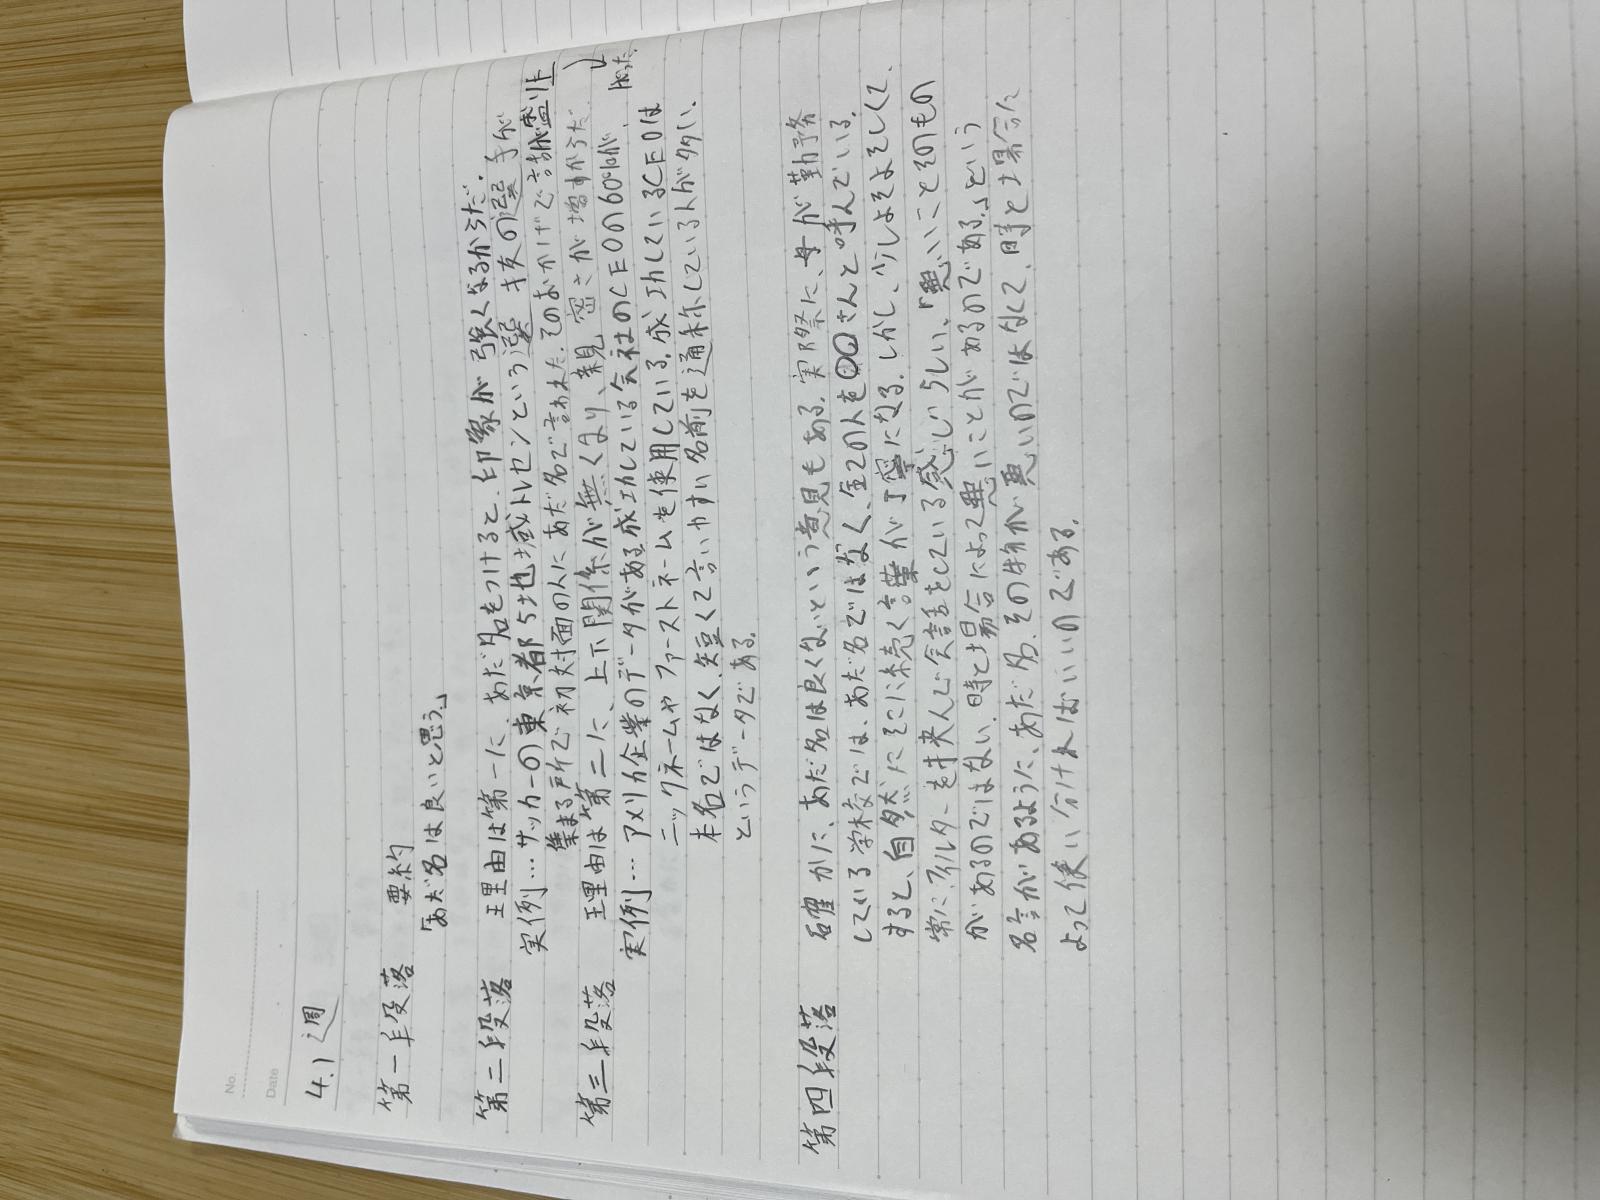 No.
Date
4.1週
第一段落 要約
「あだ名は良いと思う。」
第二段落 理由は第一に、あだ名をつけると、印象が強くなるからだ。
実例…サッカーの東京都5地域トレセンという選 抜の選手が
集まる所で初対面の人にあだ名で言われた。そのおかげで話が盛り上
がった。
第三段落 理由は第二に、上下関係が無くなり、親密さが増すからだ。
実例…アメリカ企業のデータがある。成功している会社のCEOの60%が、
ニックネームやファーストネームを使用している。成功しているCEOは
本名ではなく、短くて言いやすい名前を通称している人が多い、
というデータである。
第四段落 確かに、あだ名は良くないという意見もある。実際に、母が勤務
している学校では、あだ名ではなく、全ての人を〇〇さんと呼んでいる。
すると、自然にそこに続く言葉が丁寧になる。しかし、少しよそよそしくて、
常にフィルターを挟んで会話をしている感じらしい。「悪いことそのもの
があるのではない。時と場合によって悪いことがあるのである。」という
名言があるように、あだ名、その物が悪いのではなくて、時と場合に
よって使い分ければいいのである。